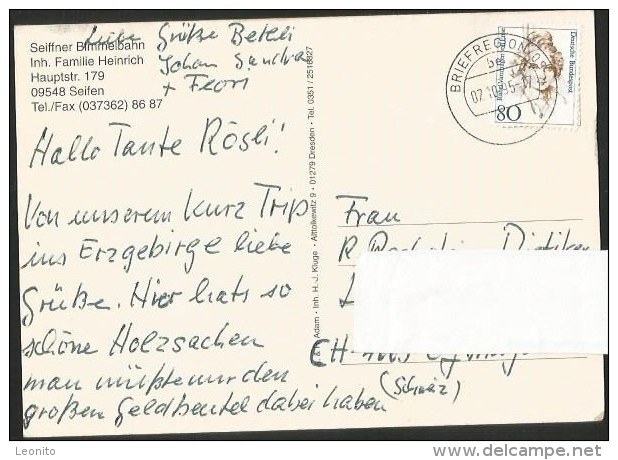 Seiffner Bimmelbahn
Inh. Familie Heinrich
Hauptstr. 179
09548 Seifen
Tel./Fax (037362) 86 87
Liebe Grüße
Johan Sandra
+
Hallo Tante Rösli!
Von unserem Kurz Trip
ins Erzgebirge liebe
Grüße. Hier hats so
schöne Holzsachen
man müßte nur den
großen Geldbeutel dabei haben
Adam • Inh. H. J. Kluge • Altolkewitz 9 • 01279 Dresden • Tel. 0351 / 2516827
BRIEFREGION
02.10.95
Deutsche Bundespost
80
Frau
R
CH-
(Schweiz)
Leonito
delcampe.net